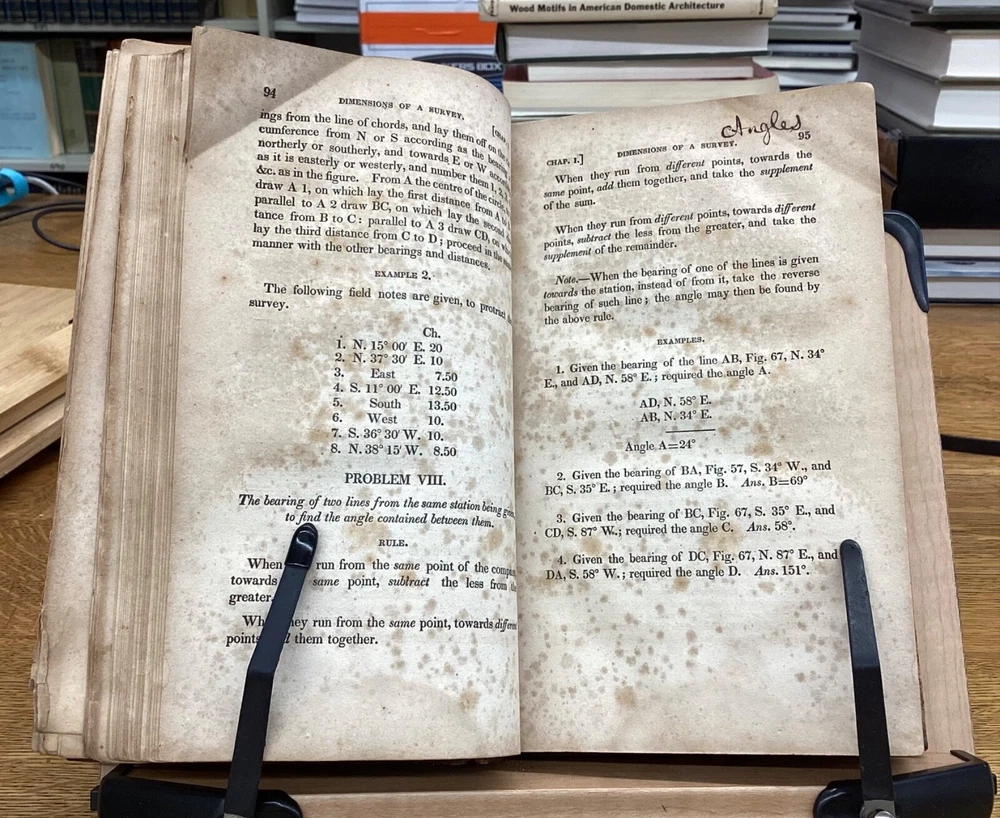 Wood Motifs in American Domestic Architecture
ERS BOX
94
DIMENSIONS OF A SURVEY.
ings from the line of chords, and lay them off on the
cumference from N or S according as the
northerly or southerly, and towards E or W
as it is easterly or westerly, and number them 1, 2,
&c. as in the figure. From A the centre of the circle,
draw A 1, on which lay the first distance from A to
parallel to A 2 draw BC, on which lay the second
tance from B to C: parallel to A 3 draw CD, on
lay the third distance from C to D; proceed in the
manner with the other bearings and distances.
EXAMPLE 2.
The following field notes are given, to protract
survey.
Ch.
1. N. 15° 00′ E. 20
2. N. 37° 30′ E. 10
3. East 7.50
4. S. 11° 00′ E. 12.50
5. South 13.50
6. West 10.
7. S. 36° 30′ W. 10.
8. N. 38° 15′ W. 8.50
PROBLEM VIII.
The bearing of two lines from the same station being
to find the angle contained between them.
RULE.
When run from the same point of the
towards same point, subtract the less from the
greater.
they run from the same point, towards
points them together.
Angles
95
CHAP. 1.] DIMENSIONS OF A SURVEY.
When they run from different points, towards the
same point, add them together, and take the supplement
of the sum.
When they run from different points, towards different
points, subtract the less from the greater, and take the
supplement of the remainder.
Note.—When the bearing of one of the lines is given
towards the station, instead of from it, take the reverse
bearing of such line; the angle may then be found by
the above rule.
EXAMPLES.
1. Given the bearing of the line AB, Fig. 67, N. 34°
E., and AD, N. 58° E.; required the angle A.
AD, N. 58° E.
AB, N. 34° E.
Angle A=24°
2. Given the bearing of BA, Fig. 57, S. 34° W., and
BC, S. 35° E.; required the angle B. Ans. B=69°
3. Given the bearing of BC, Fig. 67, S. 35° E., and
CD, S. 87° W.; required the angle C. Ans. 58°.
4. Given the bearing of DC, Fig. 67, N. 87° E., and
DA, S. 58° W.; required the angle D. Ans. 151°.